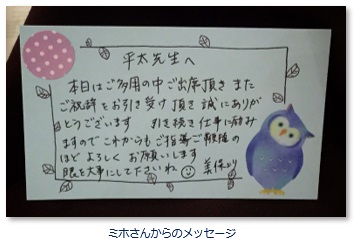 平太先生へ
本日はご多用の中ご出席頂き また
ご祝辞をお引き受け頂き誠にありが
とうございます 引き続き仕事に励み
ますのでこれからもご指導ご鞭撻の
ほどよろしくお願いします
眼を大事にしてくださいね 美保より
ミホさんからのメッセージ